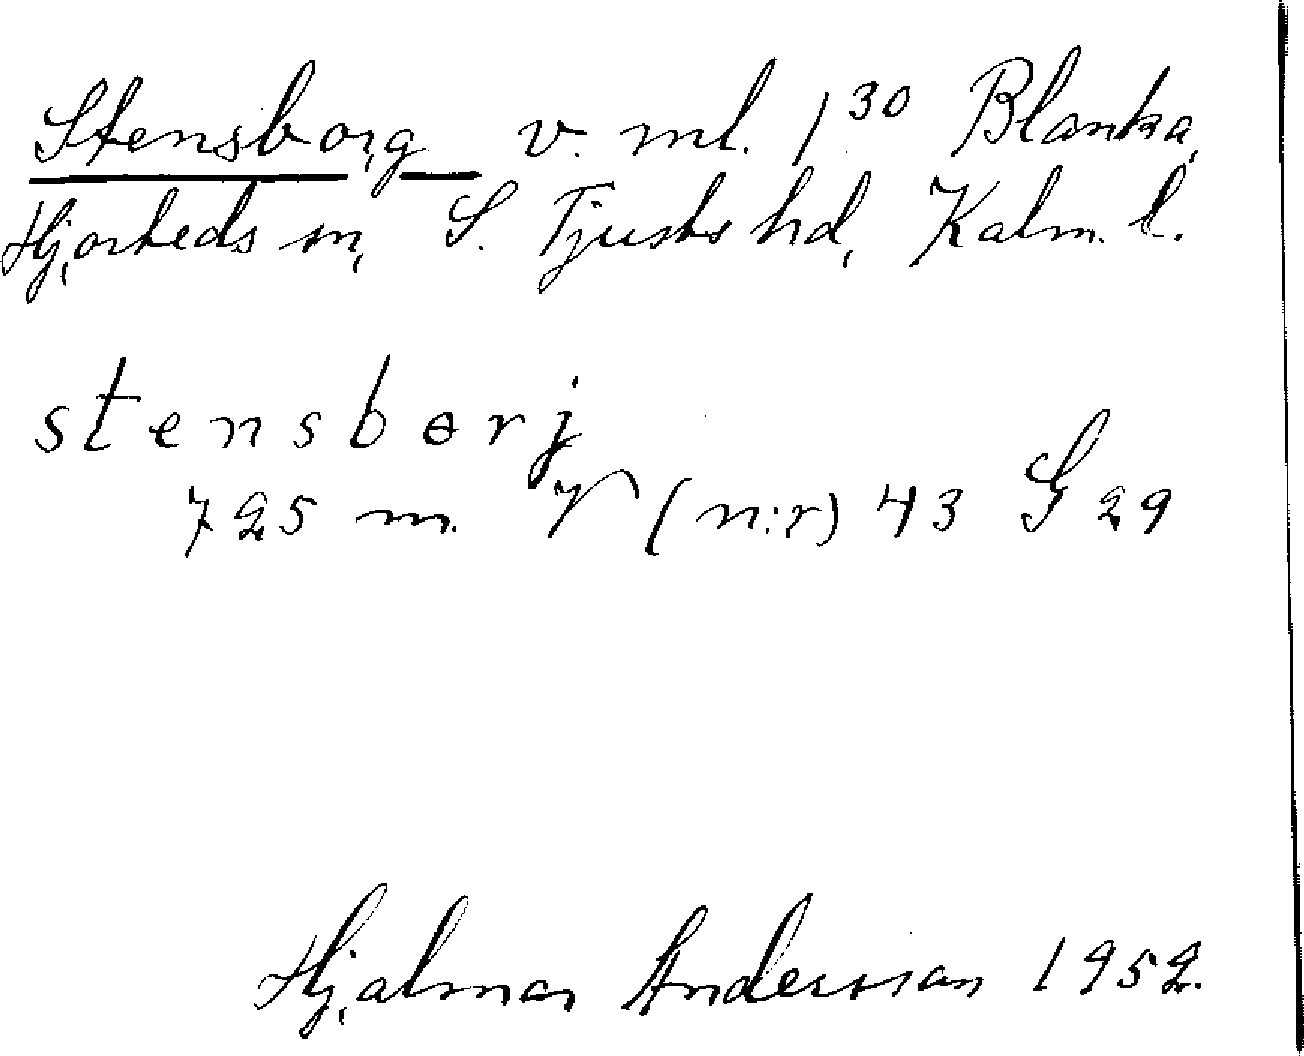 Stensborg v. ml. 1³⁰ Blanka,
Hjorteds sn, S. Tjusts hd, Kalm. l.
stensbɵrj
725 m. V (n:r) 43 S 29
Hjalmar Andersson 1952.